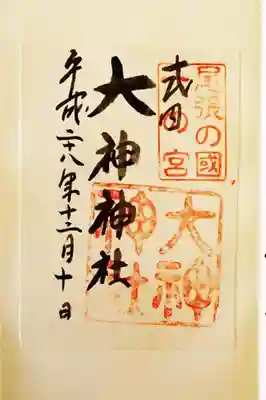 尾張の國
一の宮
式内
大神
神社
大神神社
平成二十八年十二月十日